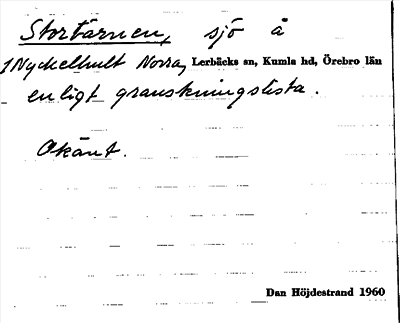 Stortärnen, sjö å
1 Nyckelhult Norra, Lerbäcks sn, Kumla hd, Örebro län
enligt granskningslista.
Okänt.
Dan Höjdestrand 1960